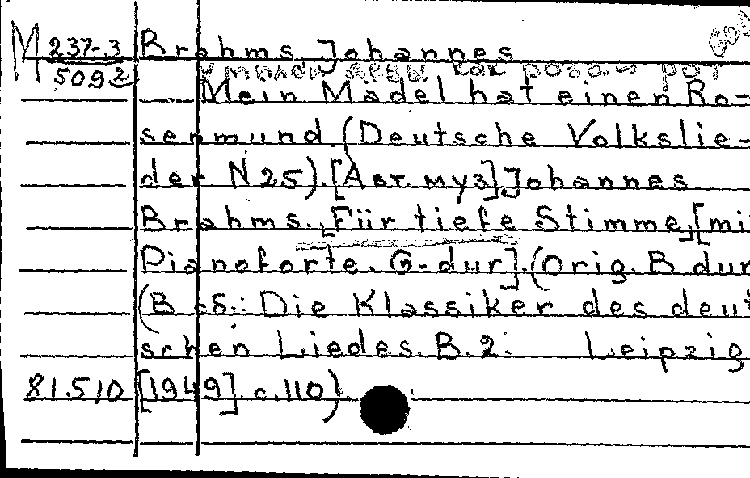 M 237-3 Brahms, Johannes
5092 У моей девы как роза рот
Mein Mädel hat einen Ro-
senmund (Deutsche Volkslie-
der N 25). [Авт. муз.] Johannes
Brahms. Für tiefe Stimme, [mi
Pianoforte. G-dur]. (Orig. B dur
(В сб.: Die Klassiker des deut
schen Liedes. B. 2. Leipzig
81.510 [1949] с. 110)